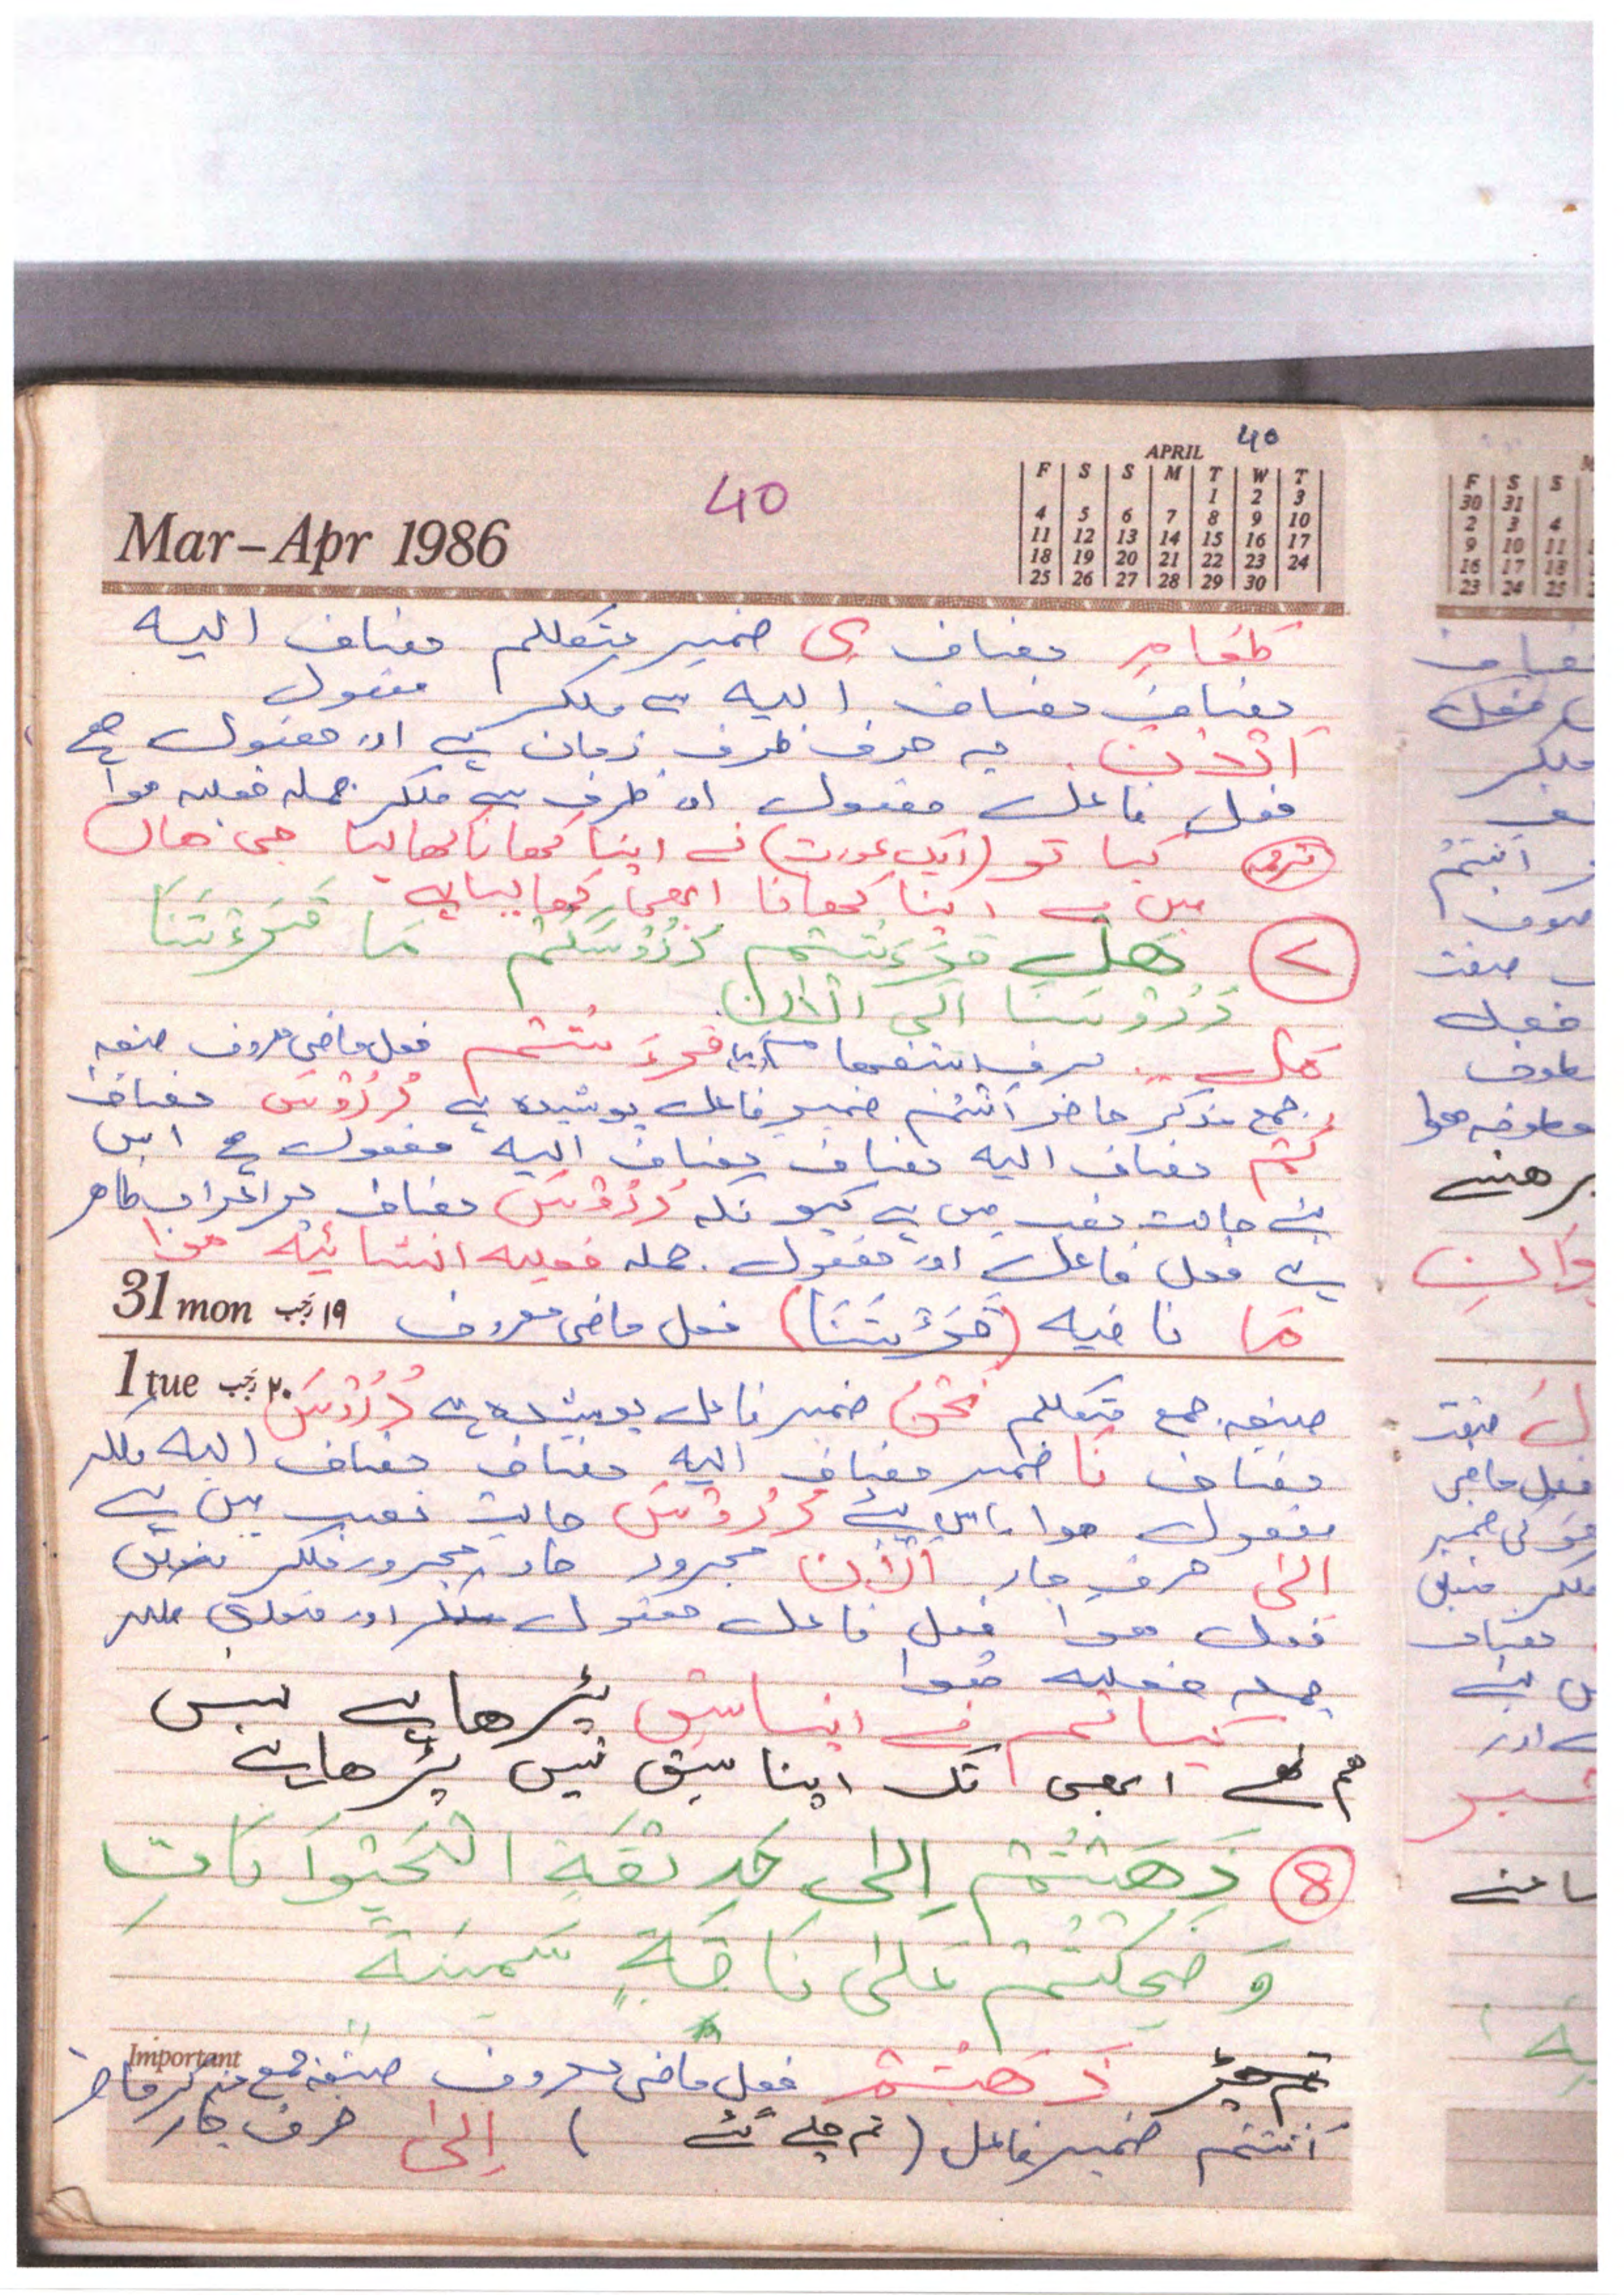 40
40
Mar-Apr 1986
APRIL
F S S M T W T
1 2 3
4 5 6 7 8 9 10
11 12 13 14 15 16 17
18 19 20 21 22 23 24
25 26 27 28 29 30
طَعَامِ مضاف ی ضمیر متکلم مضاف الیہ
مضاف مضاف الیہ سے ملکر مفعول
اَلْاٰنَ یہ حرف ظرف زمان ہے اور مفعول ہے
فعل فاعل مفعول اور ظرف سے ملکر جملہ فعلیہ ہوا
کیا تو (ایک عورت) نے اپنا کھانا کھالیا جی ھاں
میں نے اپنا کھانا ابھی کھا لیا ہے
۷ هَل قَرَءْتُمْ دُرُوْسَكُمْ مَا قَرَءْنَا
دُرُوْسَنَا اِلَى الْاٰن
هَل حرف استفہام قَرَءْتُمْ فعل ماضی معروف صیغہ
جمع مذکر حاضر اَنْتُمْ ضمیر فاعل پوشیدہ ہے دُرُوْسَ مضاف
كُمْ مضاف الیہ مضاف مضاف الیہ مفعول ہے اس
لئے حالت نصب میں ہے کیونکہ دُرُوْسَ مضاف پر اعراب ظاھر
ہے فعل فاعل اور مفعول جملہ فعلیہ انشائیہ ہوا
31 mon ۱۹ رجب
مَا نافیہ (قَرَءْنَا) فعل ماضی معروف
1 tue ۲۰ رجب
صیغہ جمع متکلم نَحْنُ ضمیر فاعل پوشیدہ ہے دُرُوْسَ
مضاف نَا ضمیر مضاف الیہ مضاف مضاف الیہ ملکر
مفعول ہوا اس لئے دُرُوْسَ حالت نصب میں ہے
اِلٰی حرف جار اَلْاٰن مجرور جار مجرور ملکر متعلق
فعل ہوا فعل فاعل مفعول اور متعلق ملکر
جملہ فعلیہ ہوا
کیا تم نے اپنا سبق پڑھا ہے نہیں
ہم نے ابھی تک اپنا سبق نہیں پڑھا ہے
8 ذَهَبْتُمْ اِلٰى حَدِيْقَةِ الْحَيْوَانَاتِ
وَ ضَحِكْتُمْ عَلٰى نَاقَةٍ سَمِيْنَة
Important
ذَهَبْتُمْ فعل ماضی معروف صیغہ جمع مذکر حاضر
اَنْتُمْ ضمیر فاعل (تم چلے گئے) اِلٰى حرف جار